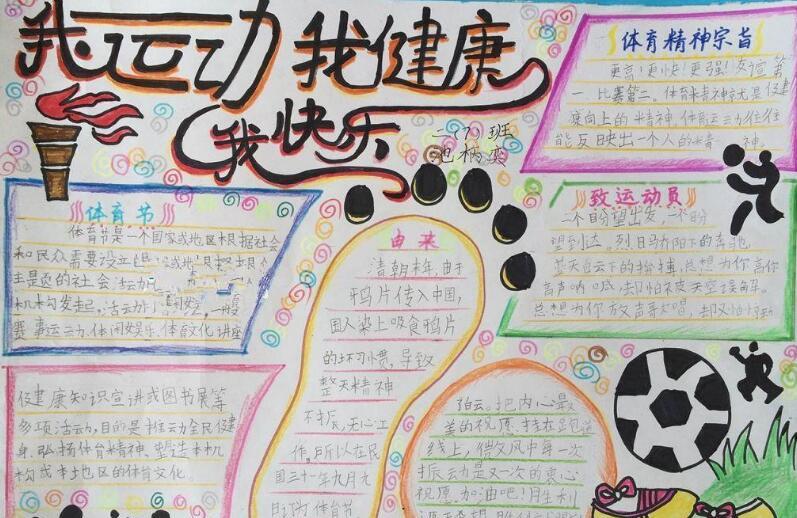 我运动我健康
我快乐
二(7)班
体育精神宗旨
更高!更快!更强!友谊第
一,比赛第二。体育精神就是健
康向上的精神,体育运动往往
能反映出一个人的精神。
体育节
体育节是一个国家或地区根据社会
和民众需要设立
主题的社会活动
机构发起,活动
赛事运动、体闲娱乐、体育文化讲座
致运动员
一个盼望出发,一个盼
望到达。烈日骄阳下的奔跑,
蓝天白云下的
想为你高
声呐喊,却只怕被天空误解。
总想为你放声高唱,却又怕
由来
清朝末年,由于
鸦片传入中国,
国人染上吸食鸦片
的坏习惯,导致
整天精神
不振,无心工
作。所以在民
国三十一年九月九
日订为体育节
促健康知识宣讲或图书展等
多项活动,目的是推动全民健
身、弘扬体育精神、塑造本机
构或本地区的体育文化。
把内心最
美的祝愿,挂在跑道
线上,借文风中每一次
振动是又一次的衷心
祝愿。加油吧!